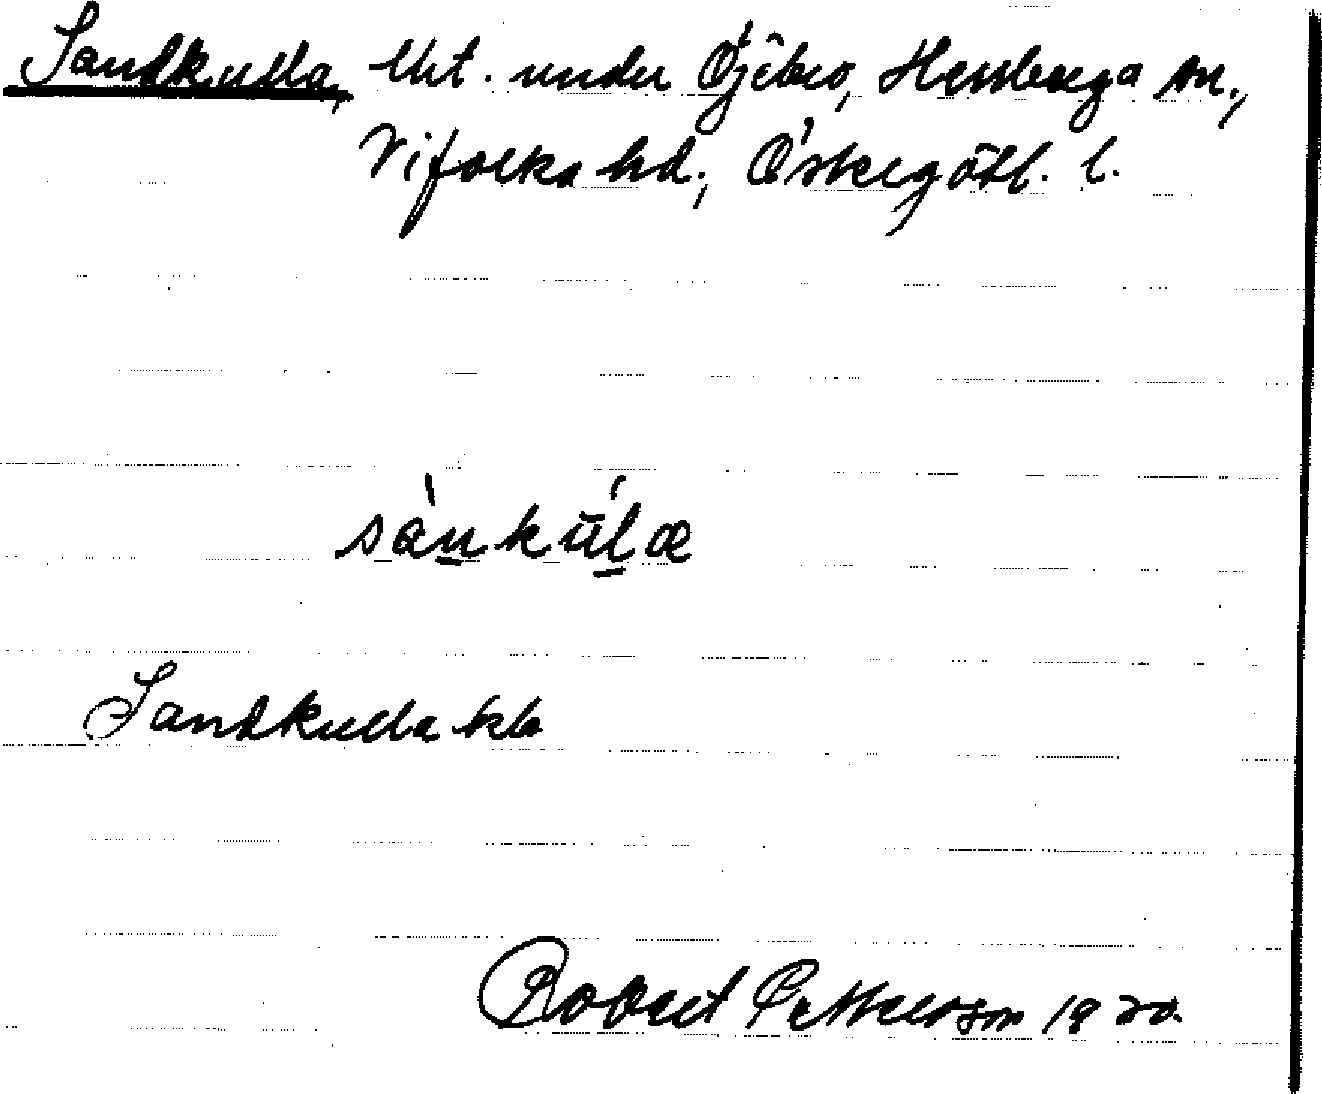 Sandkulla, lht. under Öjebro, Herrberga sn.,
Vifolka hd., Östergötl. l.
sànku̇̄læ
Sandkulla kb
Robert Pettersson 1920.